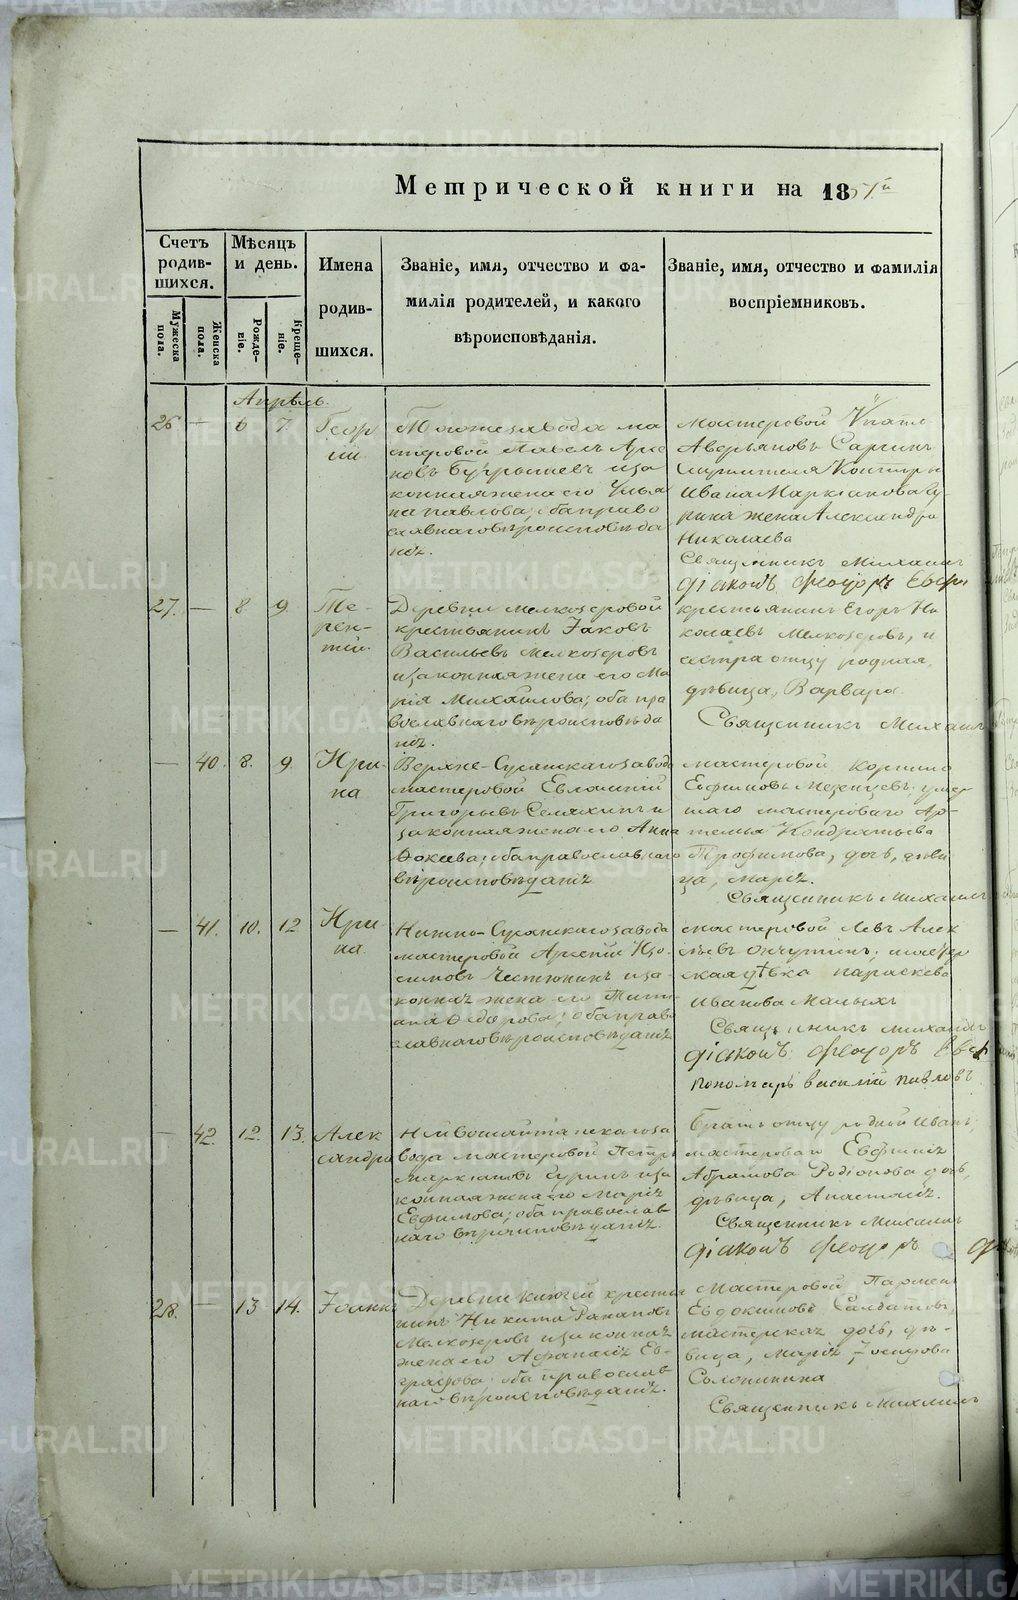 Метрической книги на 1857й
Счетъ родив-шихся.
Мѣсяцъ и день.
Имена родив-шихся.
Званіе, имя, отчество и фа-
милія родителей, и какого
вѣроисповѣданія.
Званіе, имя, отчество и фамилія
воспріемниковъ.
Мужеска пола.
Женска пола.
Рожде-ніе.
Креще-ніе.
Апрѣль.
26 — 6 7. Геор
гій.
Тогоже завода ма
стеровой Павелъ
новъ за
конная жена его Улья
на Павлова; оба право
славнаго вѣроисповѣда
нія.
мастеровой
Аверьяновъ
служителя Конторы
Ивана Маркіанова
рина жена Александра
Николаева
Священникъ Михаилъ
діаконъ Ѳеодоръ
27. — 8. 9. Те-
рен-
тій.
Деревни Мелкозеровой
крестьянинъ Іаковъ
Васильевъ Мелкозеровъ
и законная жена его Ма
рія Михайлова; оба пра
вославнаго вѣроисповѣда
нія.
крестьянинъ Егоръ Ни
колаевъ Мелкозеровъ, и
сестра отцу родная,
дѣвица, Варвара.
Священникъ Михаилъ
— 40. 8. 9. Ири-
на
Верхне-Сусанскаго завода
мастеровой Евлампій
Григорьевъ и
законная жена его Анна
Фокеева; оба православнаго
вѣроисповѣданія
мастеровой Корнило
Евфимовъ Мезенцевъ; умер
шаго мастероваго Ар-
темья Кондратьева
Трофимова, дочь, дѣви
ца, Марія.
Священникъ Михаилъ
— 41. 10. 12. Ири-
на
Нижно-Сусанскаго завода
мастеровой Арсеній Изо
симовъ и за
конная жена его Татья
на Федорова; оба право
славнаго вѣроисповѣданія
мастеровой Левъ Алек
сѣевъ
ская дѣвка Параскева
Иванова Малыхъ
Священникъ Михаилъ
діаконъ Ѳеодоръ
пономарь Василій Павловъ
— 42. 12. 13. Алек
сандра
Нейвошайтанскаго за
вода мастеровой Петръ
Маркіановъ и за
конная жена его Марія
Евфимова; оба православ
наго вѣроисповѣданія.
Братъ отцу родной Иванъ;
мастероваго Евфимія
Абрамова Родіонова дочь,
дѣвица, Анастасія.
Священникъ Михаилъ
діаконъ Ѳеодоръ
28. — 13 14. Іоаннъ
Деревни Ключей крестья
нинъ Никита
Мелкозеровъ и законная
жена его Афанасія Ев-
графова; оба православ
наго вѣроисповѣданія.
Мастеровой Парменъ
Евдокимовъ Салдатовъ,
мастерская дочь, дѣ-
вица, Марія Іосифова
Солонинина
Священникъ Михаилъ
METRIKI.GASO-URAL.RU